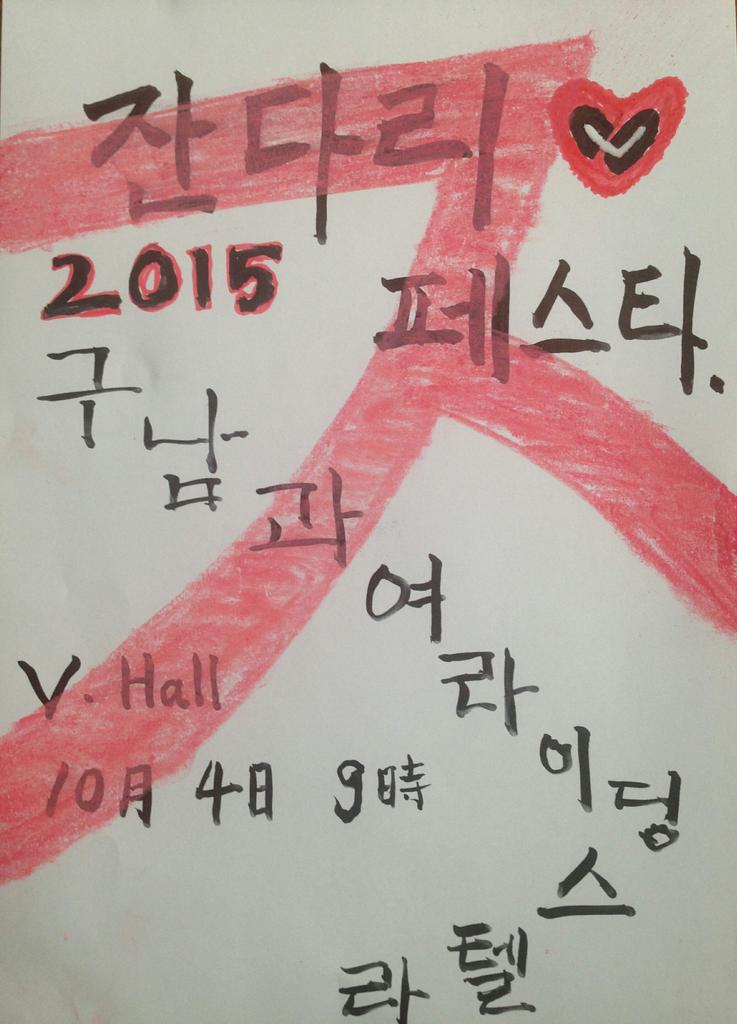 잔다리
2015 페스타.
구남과여라이딩스텔라
V. Hall
10月 4日 9時